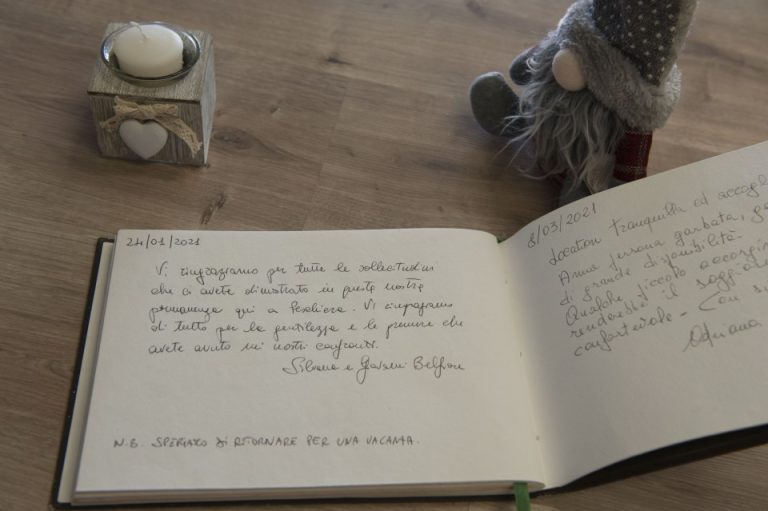 24/01/2021
Vi ringraziamo per tutte le sollecitudini
che ci avete dimostrato in questa nostra
permanenza qui a Peschiera. Vi ringraziamo
di tutto per la gentilezza e le premure che
avete avuto nei nostri confronti.
Silvana e Giovanni
N.B. SPERIAMO DI RITORNARE PER UNA VACANZA.
8/03/2021
Location tranquilla ed
Anna persona garbata,
di grande disponibilità.
Qualche piccolo
renderebbe il
confortevole - Con
Adriana